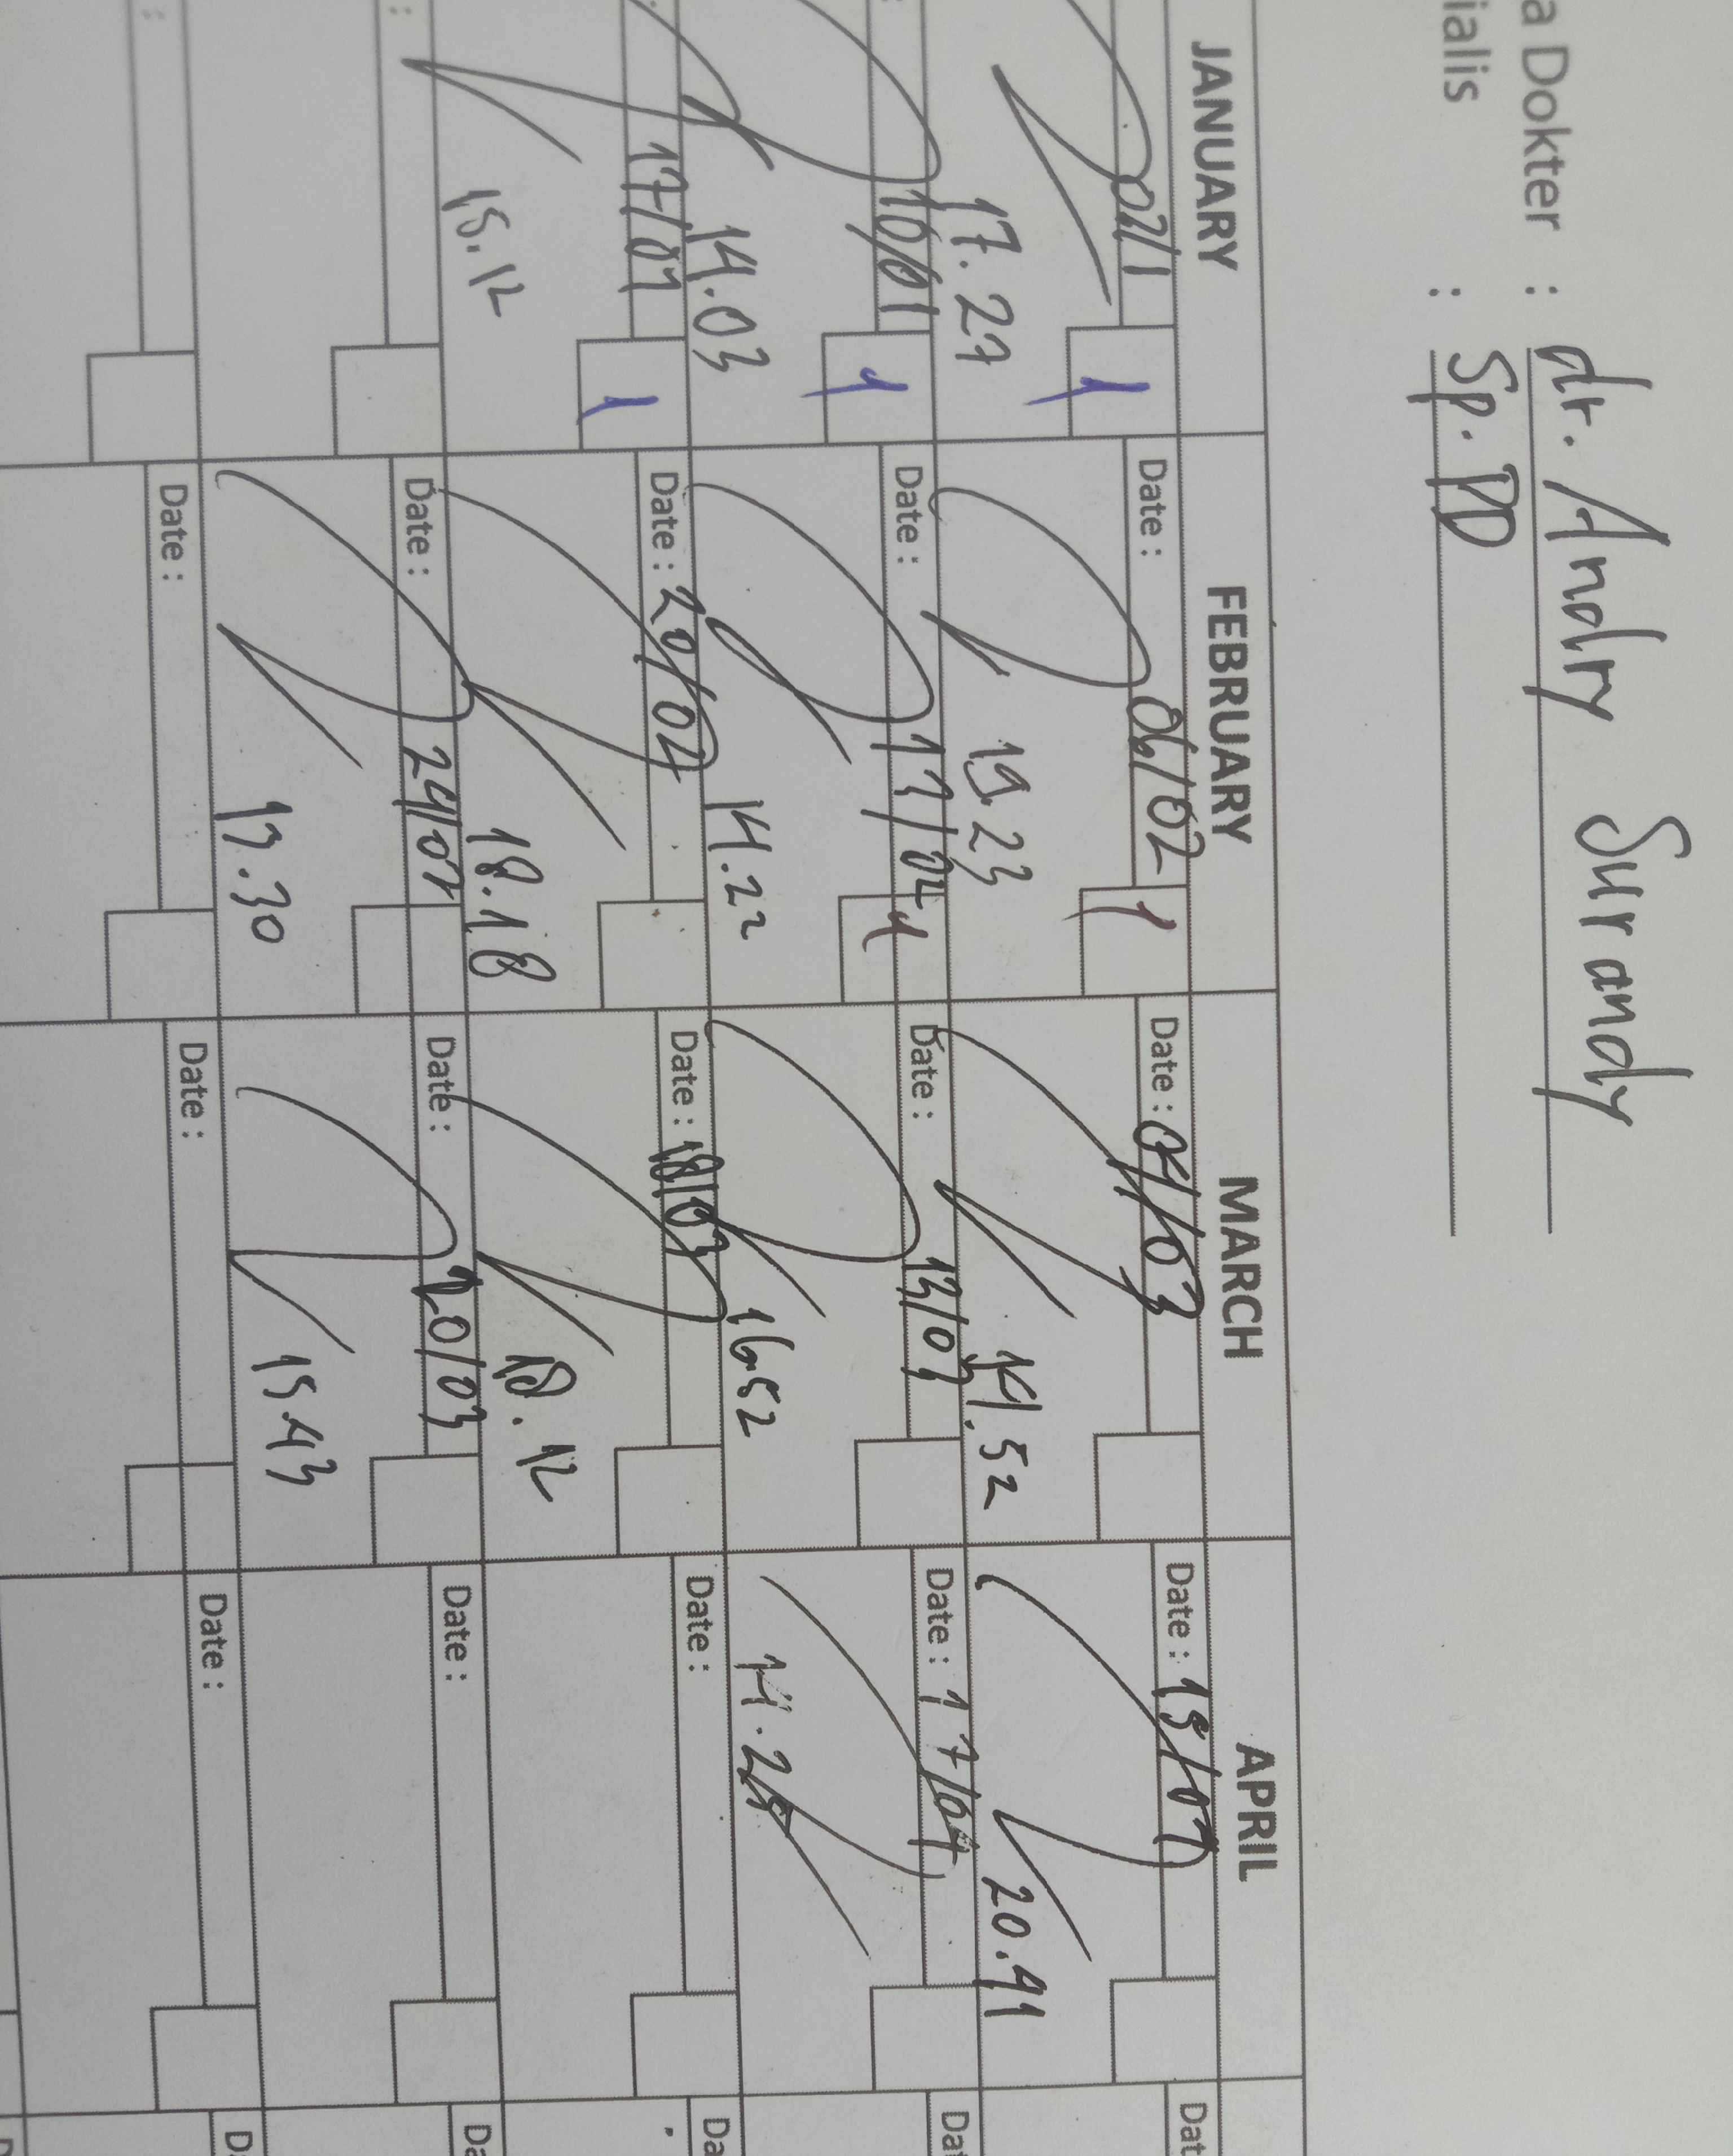 a Dokter : dr. Andry Surandy
ialis : Sp. PD
JANUARY FEBRUARY MARCH APRIL
02/1 1 Date : 06/02 1 Date : 04/03 Date : 15/04 Dat
17.27 19.23 14.52 20.41
: 10/01 1 Date : 13/02 1 Date : 13/03 Date : 17/04 Dat
14.03 14.22 16.52
17/01 1 Date : 20/02 Date : 18/03 Date : Da
15.12 18.18 18.12
: Date : 24/02 Date : 20/03 Date : Da
13.30 15.43
: Date : Date : Date : D